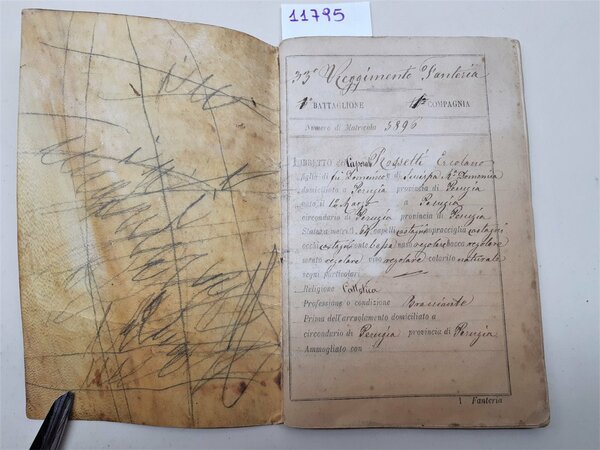 11795
33º Reggimento Fanteria
1º BATTAGLIONE 1ª COMPAGNIA
Numero di Matricola 5896
LIBRETTO del Caporal Rossetti Ercolano
figlio di fu Domenico e di Mª Domenica
domiciliato a Perugia provincia di Perugia
nato il 12 Marzo a Perugia
circondario di Perugia provincia di Perugia
Statura metri 1, 64 capelli castagni sopracciglia castagni
occhi castagni fronte bassa naso regolare bocca regolare
mento regolare viso regolare colorito naturale
segni particolari —
Religione Cattolica
Professione o condizione Bracciante
Prima dell'arruolamento domiciliato a
circondario di Perugia provincia di Perugia
Ammogliato con
1 Fanteria